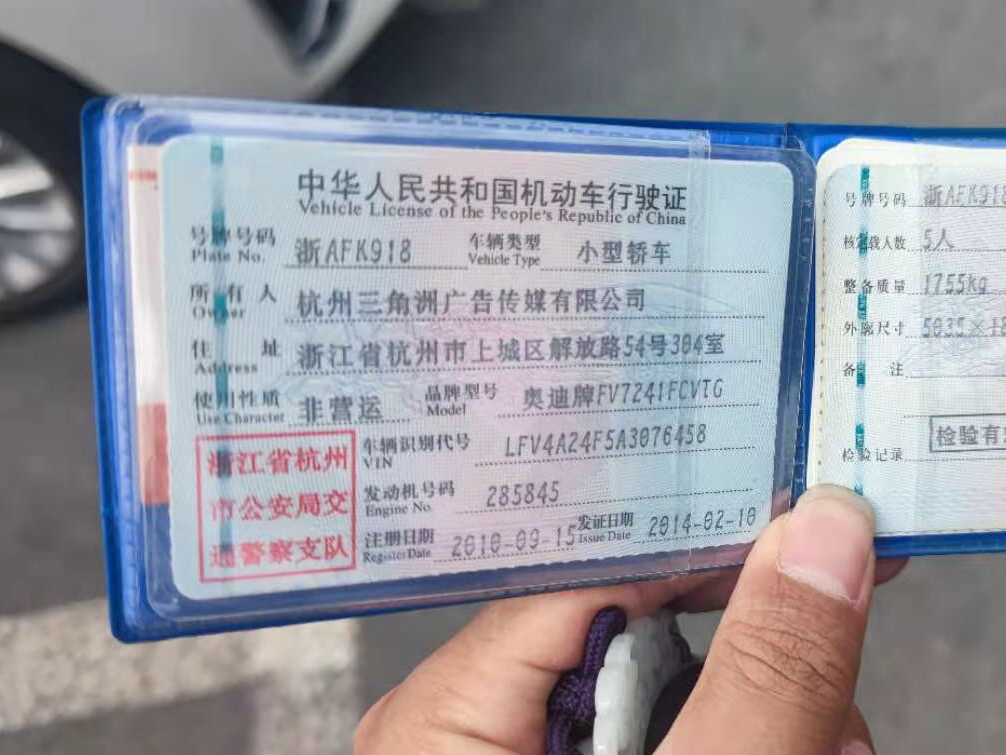 中华人民共和国机动车行驶证
Vehicle License of the People's Republic of China
号牌号码 浙AFK918 车辆类型 小型轿车
Plate No. Vehicle Type
所有人 杭州三角洲广告传媒有限公司
Owner
住址 浙江省杭州市上城区解放路54号304室
Address
使用性质 非营运 品牌型号 奥迪牌FV7241FCVTG
Use Character Model
浙江省杭州
市公安局交
通警察支队
车辆识别代号 LFV4A24F5A3076458
VIN
发动机号码 285845
Engine No.
注册日期 2010-09-15 发证日期 2014-02-10
Register Date Issue Date
号牌号码 浙AFK918
核定载人数 5人
整备质量 1755kg
外廓尺寸 5035×
备注
检验记录 检验有